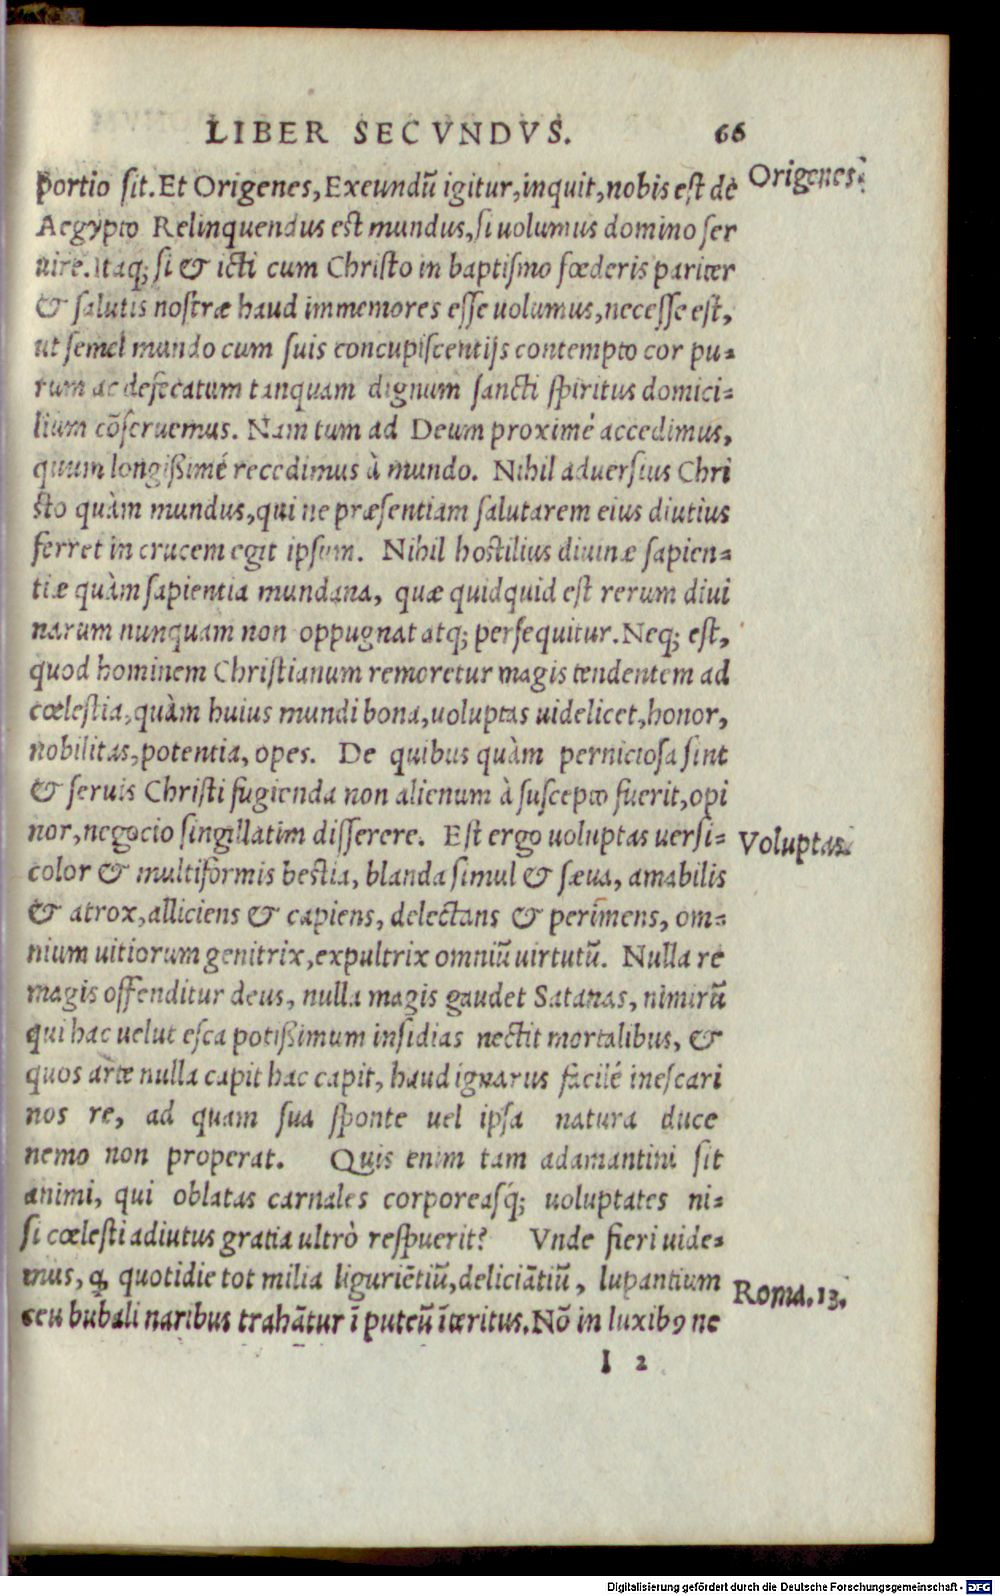 LIBER SECVNDVS. 66
portio sit. Et Origenes, Exeundū igitur, inquit, nobis est de Origenes.
Aegypto Relinquendus est mundus, si uolumus domino ser
uire. Itaq; si & icti cum Christo in baptismo fœderis pariter
& salutis nostræ haud immemores esse uolumus, necesse est,
ut semel mundo cum suis concupiscentijs contempto cor pu-
rum ac defecatum tanquam dignum sancti spiritus domici-
lium cōseruemus. Nam tum ad Deum proximé accedimus,
quum longißimé recedimus à mundo. Nihil aduersius Chri
sto quàm mundus, qui ne præsentiam salutarem eius diutius
ferret in crucem egit ipsum. Nihil hostilius diuinæ sapien-
tiæ quàm sapientia mundana, quæ quidquid est rerum diui
narum nunquam non oppugnat atq; persequitur. Neq; est,
quod hominem Christianum remoretur magis tendentem ad
cœlestia, quàm huius mundi bona, uoluptas uidelicet, honor,
nobilitas, potentia, opes. De quibus quàm perniciosa sint
& seruis Christi fugienda non alienum à suscepto fuerit, opi
nor, negocio singillatim disserere. Est ergo uoluptas uersi- Voluptas.
color & multiformis bestia, blanda simul & sæua, amabilis
& atrox, alliciens & capiens, delectans & perimens, om-
nium uitiorum genitrix, expultrix omniū uirtutū. Nulla re
magis offenditur deus, nulla magis gaudet Satanas, nimirū
qui hac uelut esca potißimum insidias nectit mortalibus, &
quos arte nulla capit hac capit, haud ignarus facilé inescari
nos re, ad quam sua sponte uel ipsa natura duce
nemo non properat. Quis enim tam adamantini sit
animi, qui oblatas carnales corporeasq́; uoluptates ni-
si cœlesti adiutus gratia ultrò respuerit? Vnde fieri uide-
mus, ꝙ quotidie tot milia liguriētiū, deliciātiū, lupantium Roma. 13.
ceu bubali naribus trahātur ī puteū īteritus. Nō in luxibꝰ ne
I 2
Digitalisierung gefördert durch die Deutsche Forschungsgemeinschaft - DFG